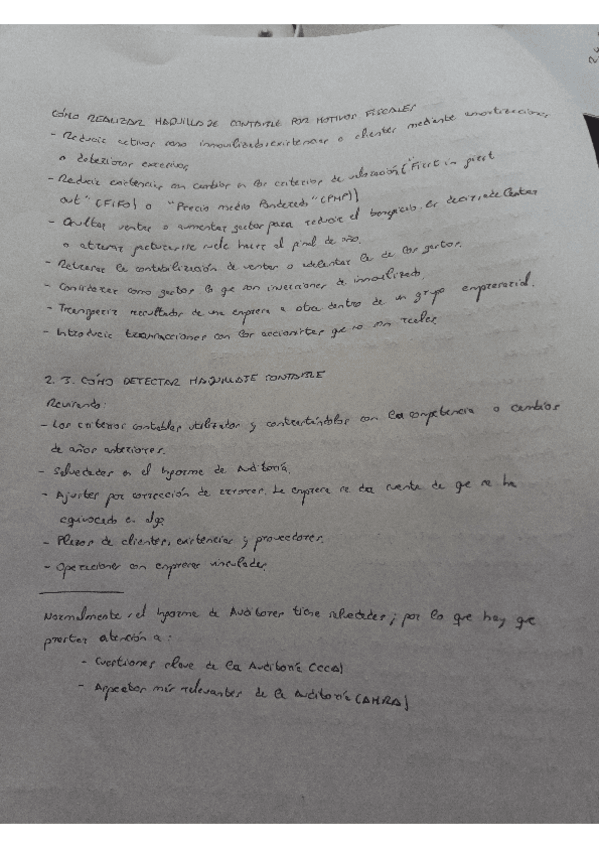 CÓMO REALIZAR MAQUILLAJE CONTABLE POR MOTIVOS FISCALES
- Reducir activos como inmovilizado, existencias o clientes mediante amortizaciones
o deterioros excesivos
- Reducir existencias con cambios en los criterios de valoración ("First in first
out" (FiFo) o "Precio medio Ponderado" (PMP))
- Ocultar ventas o aumentar gastos para reducir el beneficio, es decir, adelantar
o atrasar facturas se suele hacer al final de año.
- Retrasar la contabilización de ventas o adelantar la de los gastos.
- Considerar como gastos lo que son inversiones de inmovilizado
- Transferir resultados de una empresa a otra dentro de un grupo empresarial.
- Introducir transacciones con los accionistas que no son reales
2. 3. CÓMO DETECTAR MAQUILLAJE CONTABLE
Revisando:
- Los criterios contables utilizados y contrastándolos con la competencia o cambios
de años anteriores.
- Salvedades en el Informe de Auditoría.
- Ajustes por corrección de errores. La empresa se da cuenta de que se ha
equivocado en algo
- Plazos de clientes, existencias y proveedores.
- Operaciones con empresas vinculadas.
Normalmente, el Informe de Auditores tiene salvedades; por lo que hay que
prestar atención a:
- Cuestiones clave de la Auditoría (CCA)
- Aspectos más relevantes de la Auditoría (AMRA)